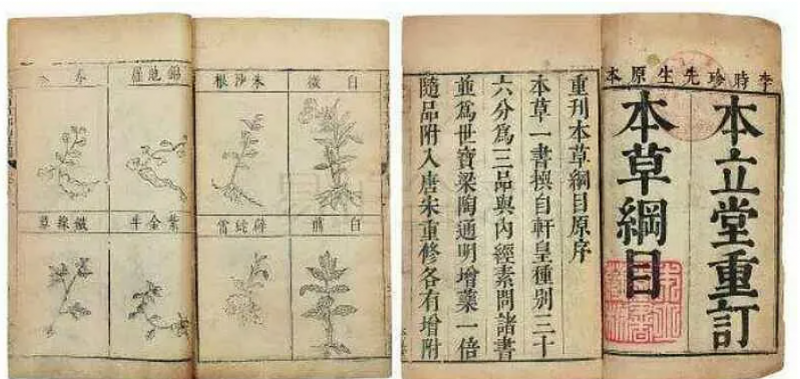 李時珍先生原本
本立堂重訂
本草綱目
重刊本草綱目原序
本草一書撰自軒皇種別三十
六分爲三品與內經素問諸書
並爲世寶梁陶通明增藥一倍
隨品附入唐宋重修各有增附
白微
朱沙根
錦地羅
白前
紫金牛
鐵線草